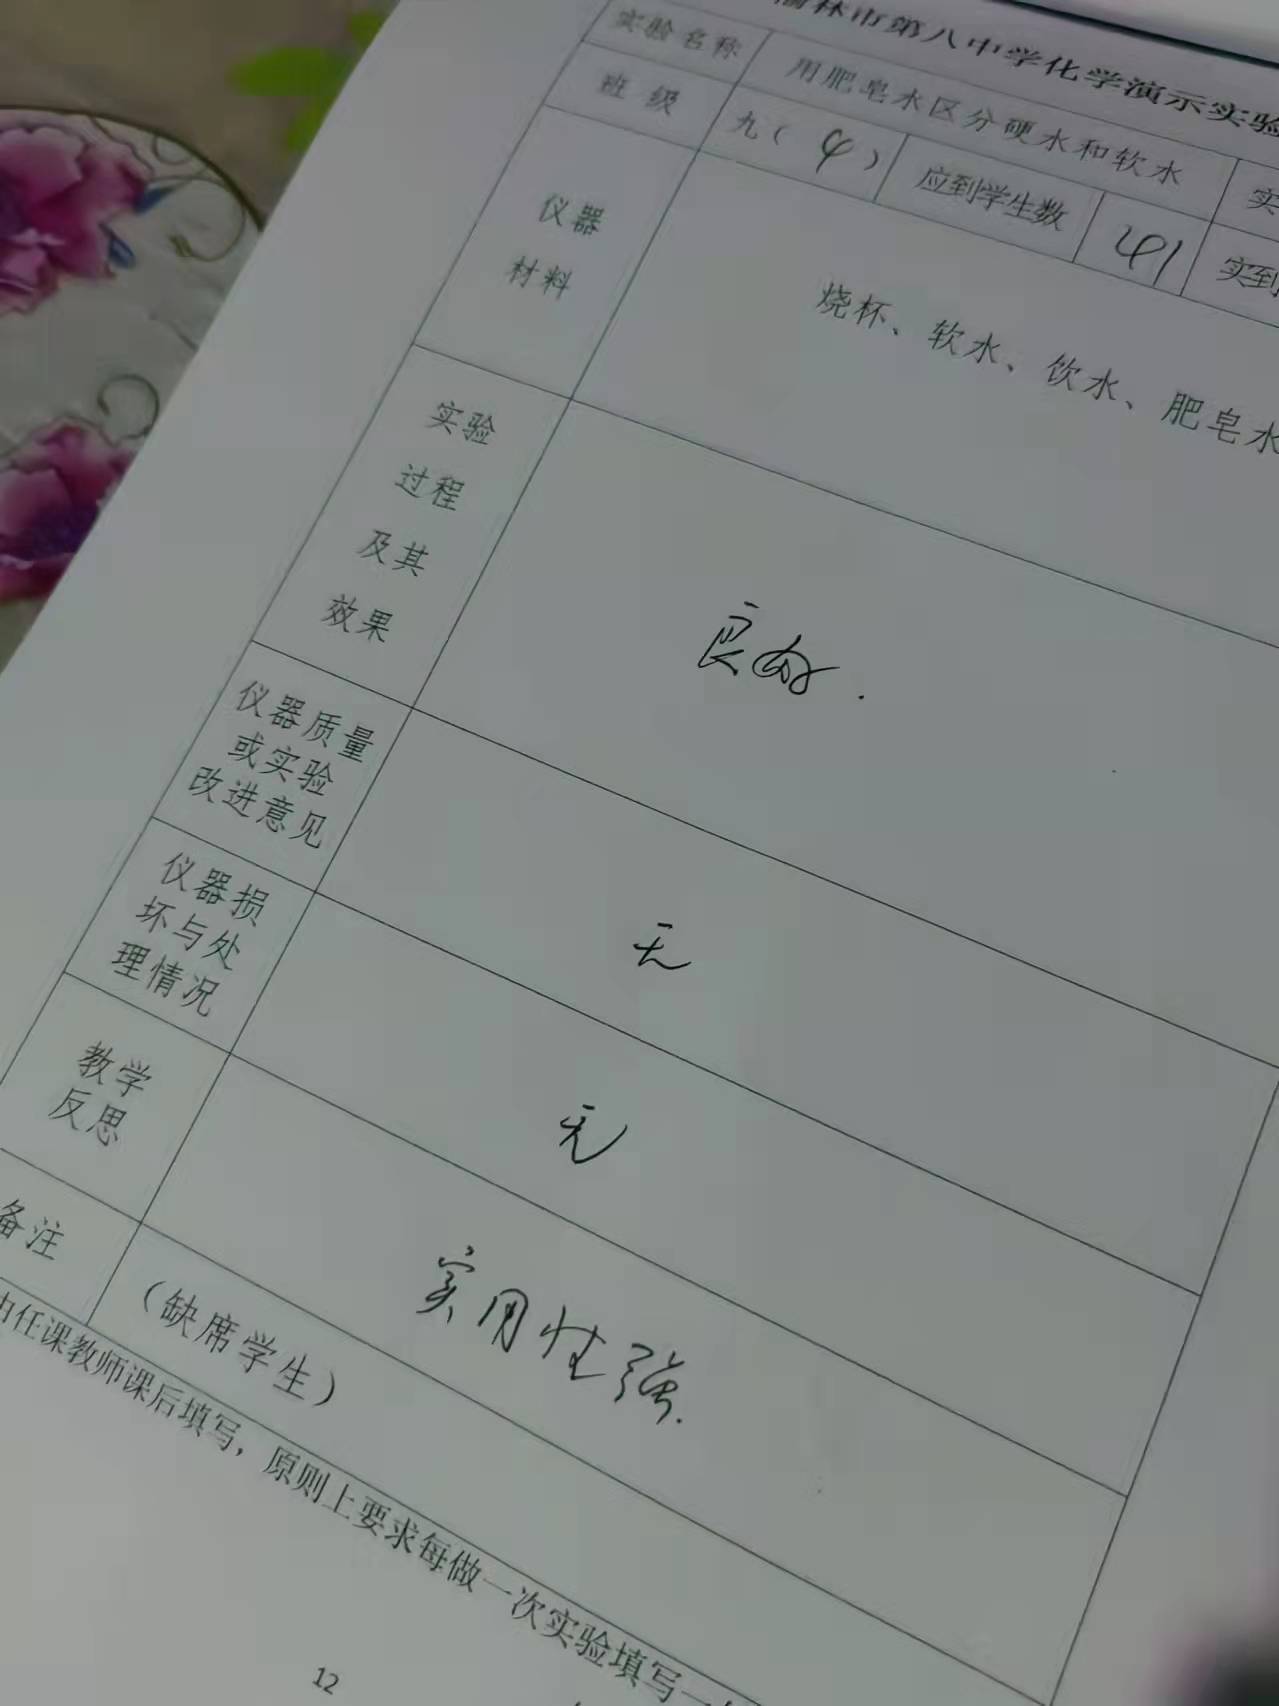 榆林市第八中学化学演示实验
实验名称 用肥皂水区分硬水和软水 实
班级 九（4） 应到学生数 41 实到
仪器
材料
烧杯、软水、饮水、肥皂水
实验
过程
及其
效果
良好.
仪器质量
或实验
改进意见
无
仪器损
坏与处
理情况
无
教学
反思
实用性强.
备注 （缺席学生）
由任课教师课后填写，原则上要求每做一次实验填写一
12